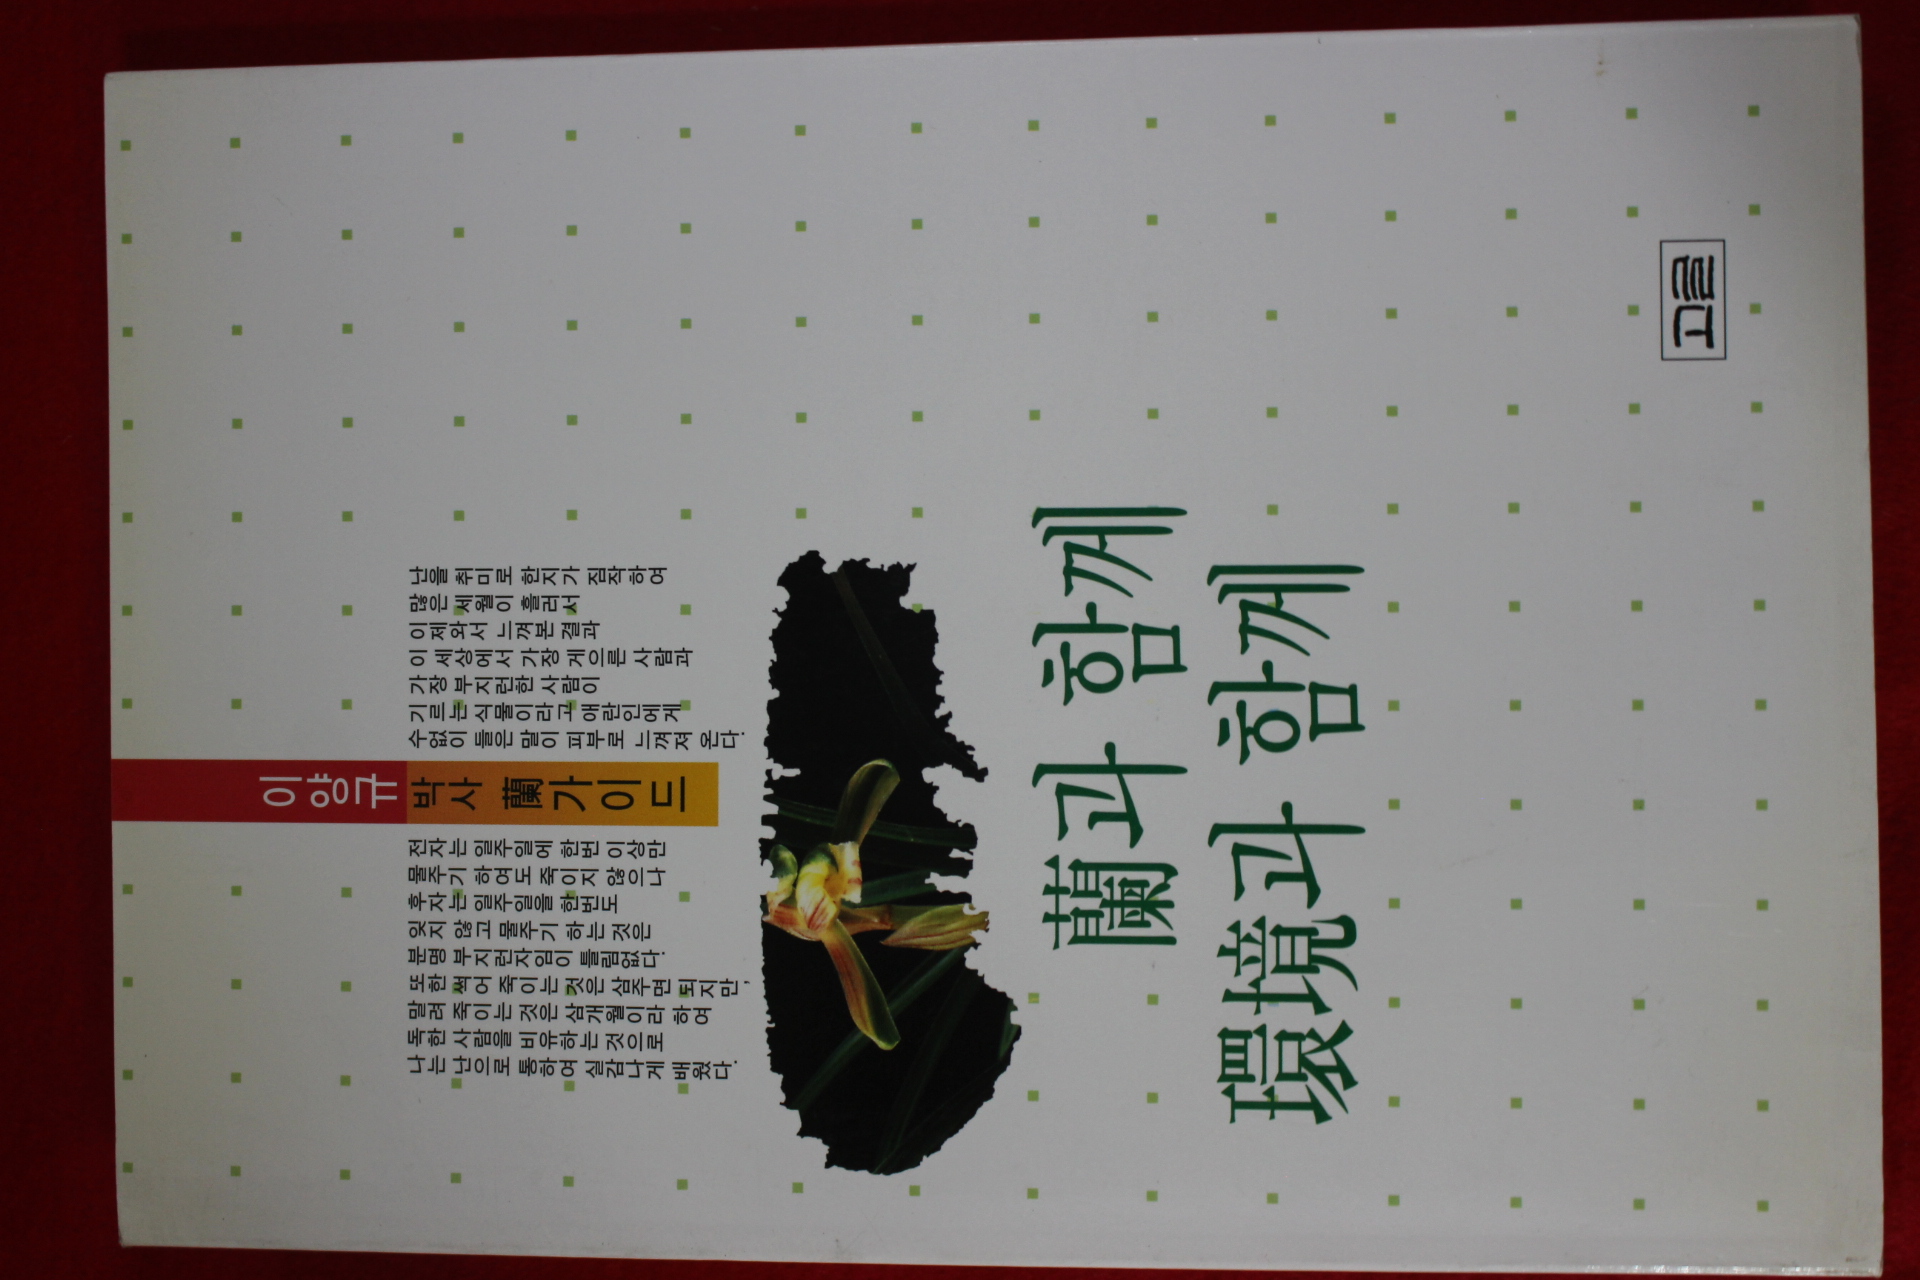 이양규 박사 蘭가이드
난을 취미로 한지가 짐작하여
많은 세월이 흘러서
이제와서 느껴본 결과
이 세상에서 가장 게으른 사람과
가장 부지런한 사람이
기르는 식물이라고 애란인에게
수없이 들은 말이 피부로 느껴져 온다.
전자는 일주일에 한번 이상만
물주기 하여도 죽이지 않으나
후자는 일주일을 한번도
잊지 않고 물주기 하는 것은
분명 부지런자임이 틀림없다.
또한 썩어 죽이는 것은 삼주면 되지만,
말려 죽이는 것은 삼개월이라 하여
독한 사람을 비유하는 것으로
나는 난으로 통하여 실감나게 배웠다.
蘭과 함께
環境과 함께
고글